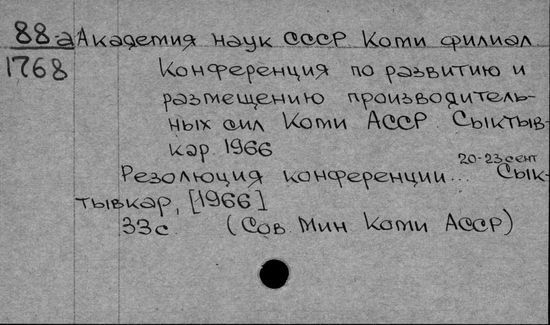 88-а Академия наук СССР Коми филиал
1768 Конференция по развитию и
размещению производитель-
ных сил Коми АССР. Сыктыв-
кар. 1966
20-23 сент
Резолюция конференции... Сык-
тывкар, [1966]
33с (Сов. Мин Коми АССР)